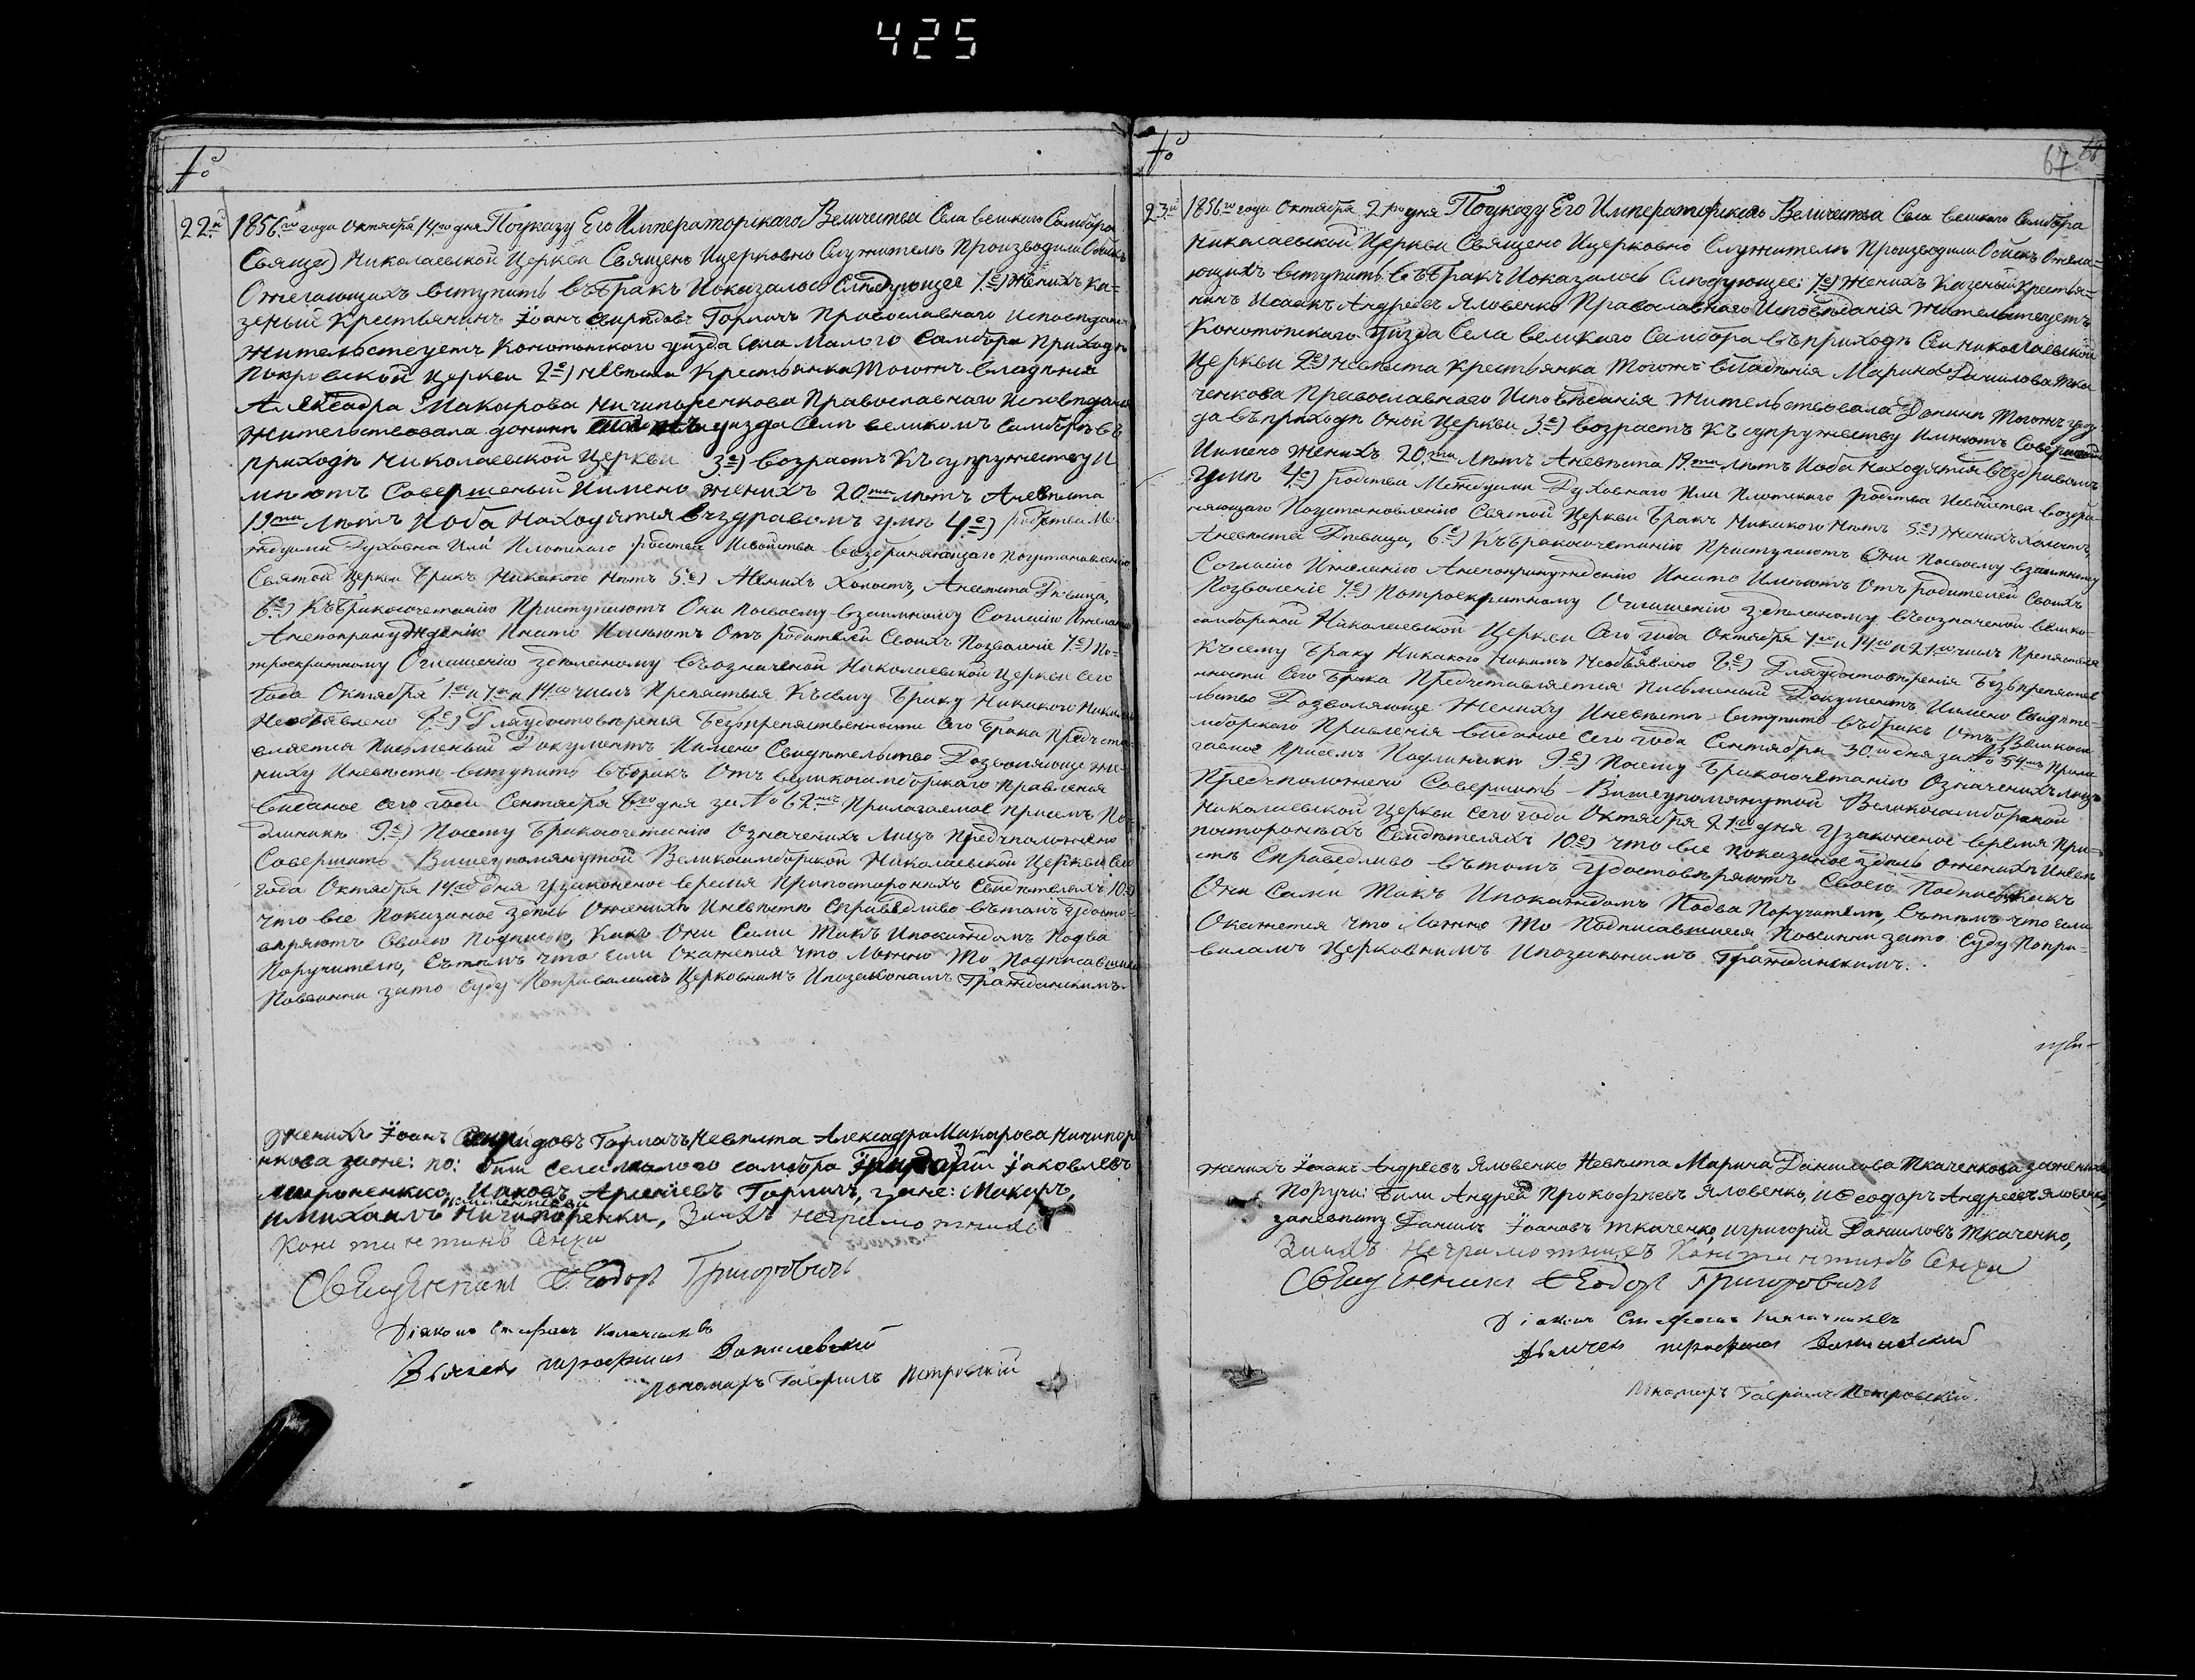 425
22й 1856го года Октября 14го дня Поуказу Его Императорскаго Величества Села великого Самбора
Николаевской Церкви Священо Ицерковно Служители Производили Обыск
Ожелающихъ вступить въ Бракъ Иоказалось Следующее 1е) Женихъ Ка=
зеный Крестьянинъ Іоанъ Горпичъ Православнаго Исповедания
Жительствуетъ Конотопского уезда Села Малого Самбора Приходе
Покровской Церкви 2е) Невеста Крестьянка Тогожъ владения
Алексадра Макарова Ничипоренкова Православнаго Исповедания
Жительствовала донине уезда Селе великомъ Самборе въ
приходе Николаевской Церкви 3е) возрастъ Къ супружеству И
меютъ Совершеный Имено Женихъ 20ти летъ Аневеста
19ти летъ Иоба Находятся Въ здравомъ уме 4е) родства Ме
ждуими Духовна Или Плотского родства Исвойства возбраняющаго Поустановлению
Святой Церкви Бракъ Никакого Нетъ 5е) Женихъ Холостъ, Аневеста Девица,
6е) Къ Бракосочетанию Приступаютъ Они Посвоему взаимному Согласию Ижеланию
Анепопринуждению Инато Имеютъ Отъ родителей Своихъ Позволение 7е) По=
троекратному Оглашению зделаному Въозначеной Николаевской Церкви Сего
Года Октября 1го и 7го и 14го числъ Препятствия Къ сему Браку Никакого Никимъ
Необявлено 8е) Дляудостоверения Безпрепятственности Сего Брака Предъста=
вляется Письменый Документъ Имено Свидетельство Дозволяюще Же=
ниху Иневести вступить Въбракъ Отъ великосамборского Правления
Виданое сего года Сентября дня за No 62мъ Прилогаемое Присемъ По=
длинике 9е) Посему Бракосочетанию Означенихъ Лицъ Предположено
Совершить Вишеупомянутой Великосамборской Николаевской Церкви Сего
года Октября 14го дня Узаконеное время Припосторонихъ Свидетеляхъ 10е)
Что все Показаное здесь Ожених Иневесте Справедливо вътомъ Удосто=
веряютъ Своею Подписью, Какъ Они Сами Такъ Ипокаждомъ Подва
Поручителя, Сътемъ что если Окажется что Ложно То Подписавшися
Повинни зато Суду Поправиламъ Церковнимъ Ипозаконамъ Гражданскимъ
Женихъ Іоанъ Горпачъ, Невеста Алексадра Макарова Ничипоре
нкова зажe: по: били села малого самбора Іаковлевъ
Мироненкко, Иаковъ Горпичъ, зане: Макаръ,
имихаилъ Ничипоренки, Заихъ неграмотнихъ
Константинъ Сенги
Священникъ Ѳеодоръ Григоровичъ
Діаконъ Стефанъ
Дьячекъ Данилевский
Пономаръ Гаврилъ Петровский
67
23й 1856го года Октября 21го дня Поуказу Его Императорскаго Величества Села великого Самбора
Николаевской Церкви Священо Ицерковно Служители Производили Обискъ Ожела=
ющихъ вступить въ Бракъ Иоказалось Следующее: 1е) Женихъ Казеный Крестья=
нинъ Исаакъ Андреевъ Яловенко Православнаго Исповедания Жительствуетъ
Конотопского Уезда Села великого Самбора въ приходе Николаевской
Церкви 2е) Невеста Крестьянка Тогожъ владения Марина Данилова Тка
ченкова Православнаго Исповедания Жительствовала Донине Тогожъ уез
да въ приходе Оной Церкви 3е) возрастъ Къ супружеству Имеютъ Совершеный
Имено Женихъ 20ти летъ Аневеста 19ти летъ Иоба Находятся въздравомъ
Уме 4е) родства Междуими Духовнаго Или Плотского родства Исвойства возбра
няющаго Поустановлению Святой Церкви Бракъ Никакого Нетъ 5е) Женихъ Холостъ,
Аневеста Девица, 6е) Къ бракосочетанию Приступаютъ Они Посвоему взаимному
Согласию Ижеланию Анепопринуждению Инато Имеютъ Отъ родителей Своихъ
Позволение 7е) Потроекратному Оглашению зделаному въозначеной велико=
самборской Николаевской Церкви Сего года Октября 7го и 14го и 21го числъ Препятствия
Къ сему Браку Никакого Никимъ Необъявлено 8е) Дляудостоверения Безъпрепятстве
нности Сего Брака Предъставляется Письменый Документъ Имено Свидете=
льство Дозволяюще Жениху Иневесте вступить въбракъ Отъ Великоса
мборского Правления виданое Сего года Сентября 30го дня за No 54мъ Прила
гаемое Присемъ Подлинике 9е) Посему Бракосочетанию Означенихъ лицъ
Предположено Совершить Вишеупомянутой Великосамборской
Николаевской Церкви Сего года Октября 21го дня Узаконеное время При=
посторонихъ Свидетеляхъ 10е) что все показаное здесь Ожених Иневе
сте Справедливо вътомъ Удостоверяютъ Своею Подписью Какъ
Они Сами Такъ Ипокаждомъ Подва Поручителя, Сътемъ что если
Окажется что Ложно То Подписавшися Повинни зато Суду Попра=
виламъ Церковнимъ Ипозаконамъ Гражданскимъ.
Женихъ Исаакъ Андреевъ Яловенко Невеста Марина Данилова Ткаченкова зажениха
Поручи: Били Андрей Прокофиевъ Яловенко, иѲеодоръ Андреевъ Яловенко,
заневесту Данилъ Іоановъ Ткаченко, игригорий Даниловъ Ткаченко,
Заихъ Неграмотнихъ Константинъ Сенги
Священикъ Ѳеодоръ Григоровичъ
Діаконъ Стефанъ
Дьячекъ Данилевский
Пономаръ Гаврилъ Петровский.